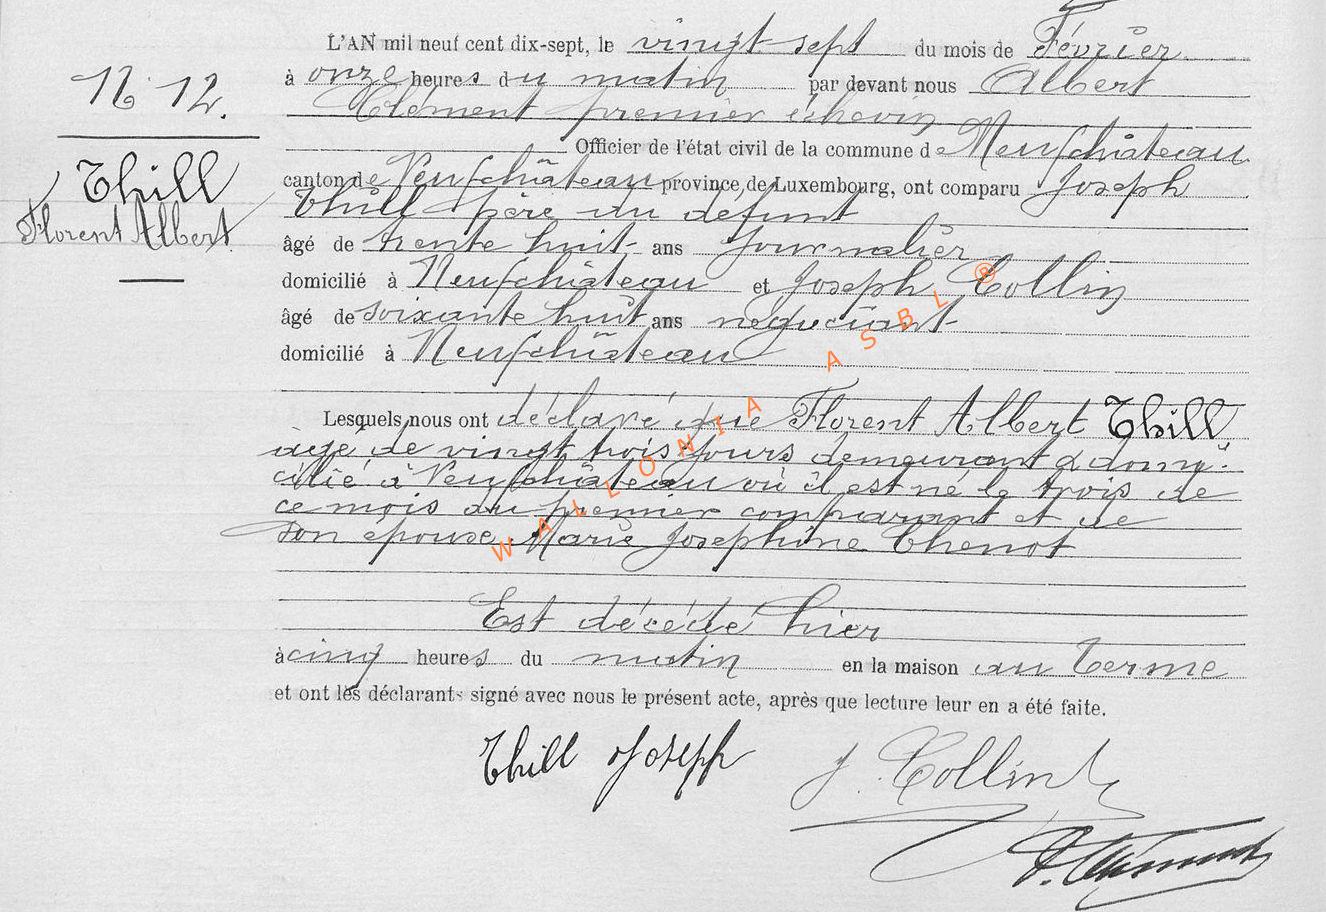 N° 12.
Thill
Florent Albert
L'AN mil neuf cent dix-sept, le vingt sept du mois de Février
à onze heures du matin par devant nous Albert
Clément premier échevin
Officier de l'état civil de la commune de Neufchâteau
canton de Neufchâteau province de Luxembourg, ont comparu Joseph
Thill père du défunt
âgé de trente huit ans journalier
domicilié à Neufchâteau et Joseph Collin
âgé de soixante huit ans négociant
domicilié à Neufchâteau
Lesquels nous ont déclaré que Florent Albert Thill
âgé de vingt trois jours demeurant & domi-
cilié à Neufchâteau où il est né le trois de
ce mois du premier comparant et de
son épouse Marie Joséphine Thenot
Est décédé hier
à cinq heures du matin en la maison au Terme
et ont les déclarants signé avec nous le présent acte, après que lecture leur en a été faite.
Thill Joseph J. Collin
A. Clément
WALLONIA ASBL ®